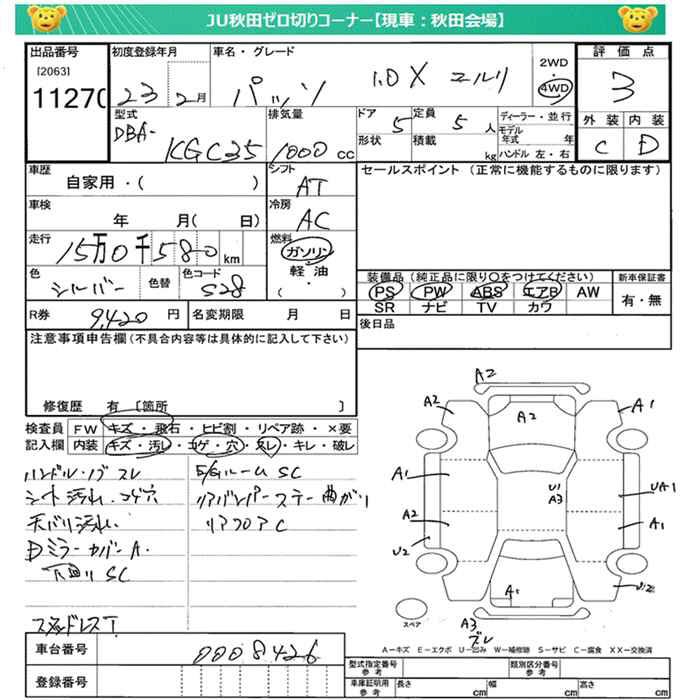 JU秋田ゼロ切りコーナー【現車：秋田会場】
出品番号
[2063]
11270
初度登録年月
23 2月
車名・グレード
パッソ 1.0X
2WD
・
4WD
評価点
3
外装 内装
C D
型式
DBA-
KGC35
排気量
1000 cc
ドア
5
定員
5 人
形状
積載
kg
ディーラー・並行
モデル年式 年
ハンドル 左・右
車歴
自家用・( )
シフト
AT
車検
年 月( 日)
冷房
AC
走行
15万0千580 km
燃料
ガソリン
・
軽油
・
( )
色
シルバー
色替
色コード
S28
R券
9,420 円
名変期限 月 日
セールスポイント (正常に機能するものに限ります)
装備品(純正品に限り○をつけてください)
PS PW ABS エアB AW
SR ナビ TV カワ
新車保証書
有・無
後日品
注意事項申告欄(不具合内容等は具体的に記入して下さい)
修復歴 有 〔箇所 〕
検査員記入欄
FW キズ・飛石・ヒビ割・リペア跡・×要
内装 キズ・汚レ・コゲ・穴・スレ・キレ・破レ
ハンドル・ノブスレ
シート汚れ、コゲ穴
天バリ汚れ、
DミラーカバーA.
下回りSC
スタッドレスT
E/GルームSC
リアバンパーステー曲がり
リアフロアC
A2
A2
A2
A1
A1
U1
A3
UA1
A2
A1
U2
A1
U2
スペア
A3
ズレ
A－キズ E－エクボ U－凹み W－補修跡 S－サビ C－腐食 XX－交換済
車台番号
0008426
登録番号
型式指定番号
参考
類別区分番号
参考
車庫証明用
参考
長さ cm
幅 cm
高さ cm